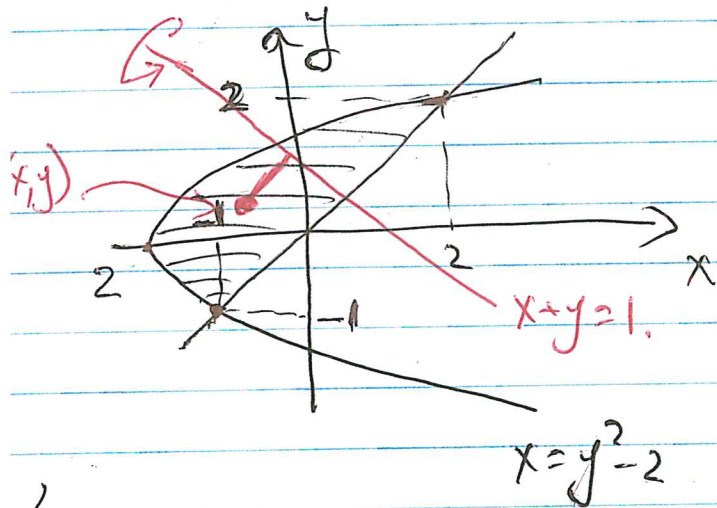 y
2
x,y)
-1
2
2
x
-1
x+y=1.
x=y²-2